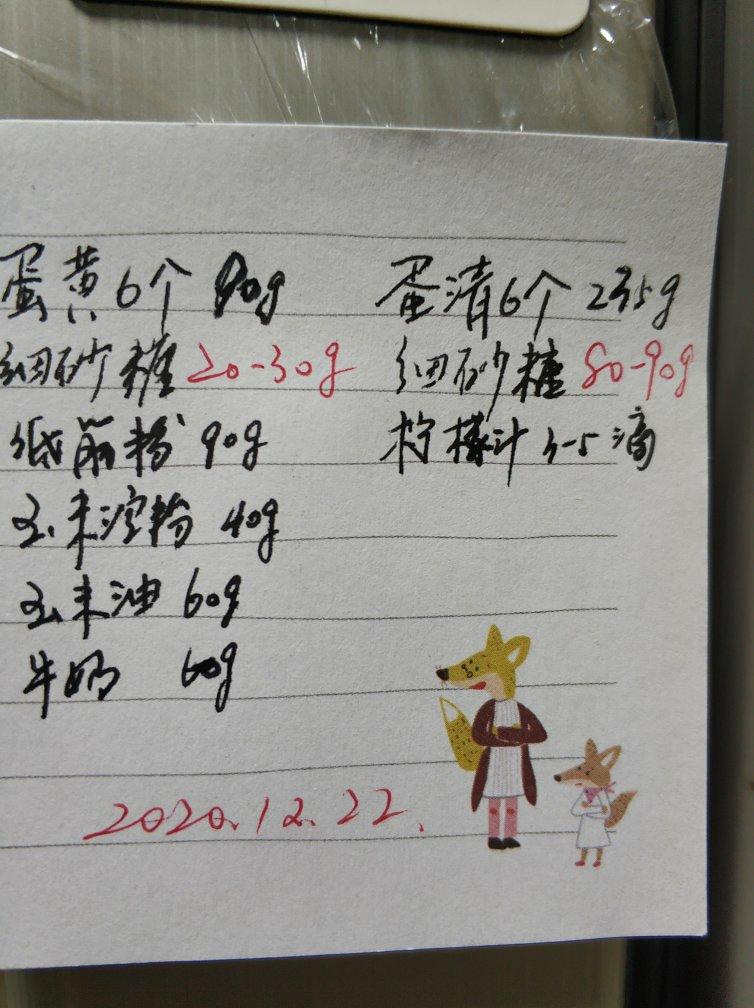 蛋黄6个 90g
细砂糖 20-30g
低筋粉 90g
玉米淀粉 40g
玉米油 60g
牛奶 60g
蛋清6个 235g
细砂糖 80-90g
柠檬汁 3-5滴
2020.12.22.